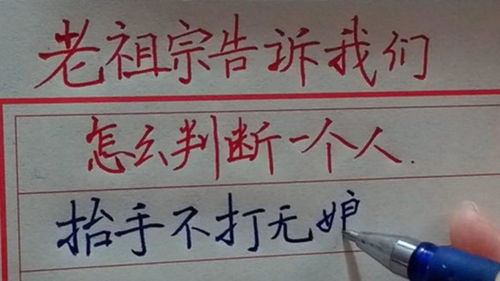 老祖宗告诉我们
怎么判断一个人.
抬手不打无